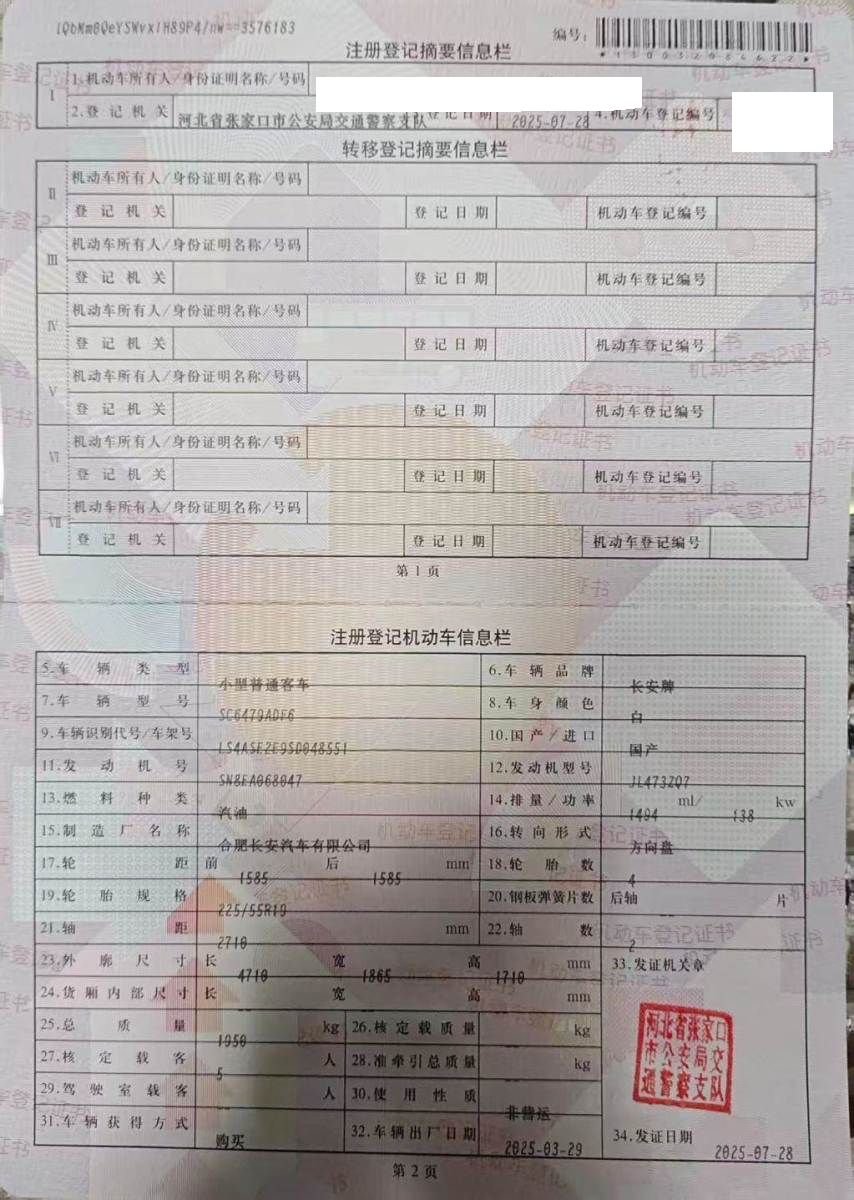 IQbKmGQeYSWvxIH89P4/nw==3576183
编号:
*130032084622*
注册登记摘要信息栏
I
1.机动车所有人/身份证明名称/号码
2.登记机关 河北省张家口市公安局交通警察支队 3.登记日期 2025-07-28 4.机动车登记编号
转移登记摘要信息栏
II
机动车所有人/身份证明名称/号码
登记机关 登记日期 机动车登记编号
III
机动车所有人/身份证明名称/号码
登记机关 登记日期 机动车登记编号
IV
机动车所有人/身份证明名称/号码
登记机关 登记日期 机动车登记编号
V
机动车所有人/身份证明名称/号码
登记机关 登记日期 机动车登记编号
VI
机动车所有人/身份证明名称/号码
登记机关 登记日期 机动车登记编号
VII
机动车所有人/身份证明名称/号码
登记机关 登记日期 机动车登记编号
第1页
注册登记机动车信息栏
5.车辆类型 小型普通客车 6.车辆品牌 长安牌
7.车辆型号 SC6479ADF6 8.车身颜色 白
9.车辆识别代号/车架号 LS4ASE2E9SD048551 10.国产/进口 国产
11.发动机号 SN8EA068047 12.发动机型号 JL473ZQ7
13.燃料种类 汽油 14.排量/功率 1494 ml/ 138 kw
15.制造厂名称 合肥长安汽车有限公司 16.转向形式 方向盘
17.轮距 前 1585 后 1585 mm 18.轮胎数 4
19.轮胎规格 225/55R19 20.钢板弹簧片数 后轴 片
21.轴距 2710 mm 22.轴数 2
23.外廓尺寸 长 4710 宽 1865 高 1710 mm 33.发证机关章
24.货厢内部尺寸 长 宽 高 mm
25.总质量 1950 kg 26.核定载质量 kg
27.核定载客 5 人 28.准牵引总质量 kg
29.驾驶室载客 人 30.使用性质 非营运
31.车辆获得方式 购买 32.车辆出厂日期 2025-03-29 34.发证日期 2025-07-28
河北省张家口
市公安局交
通警察支队
第2页